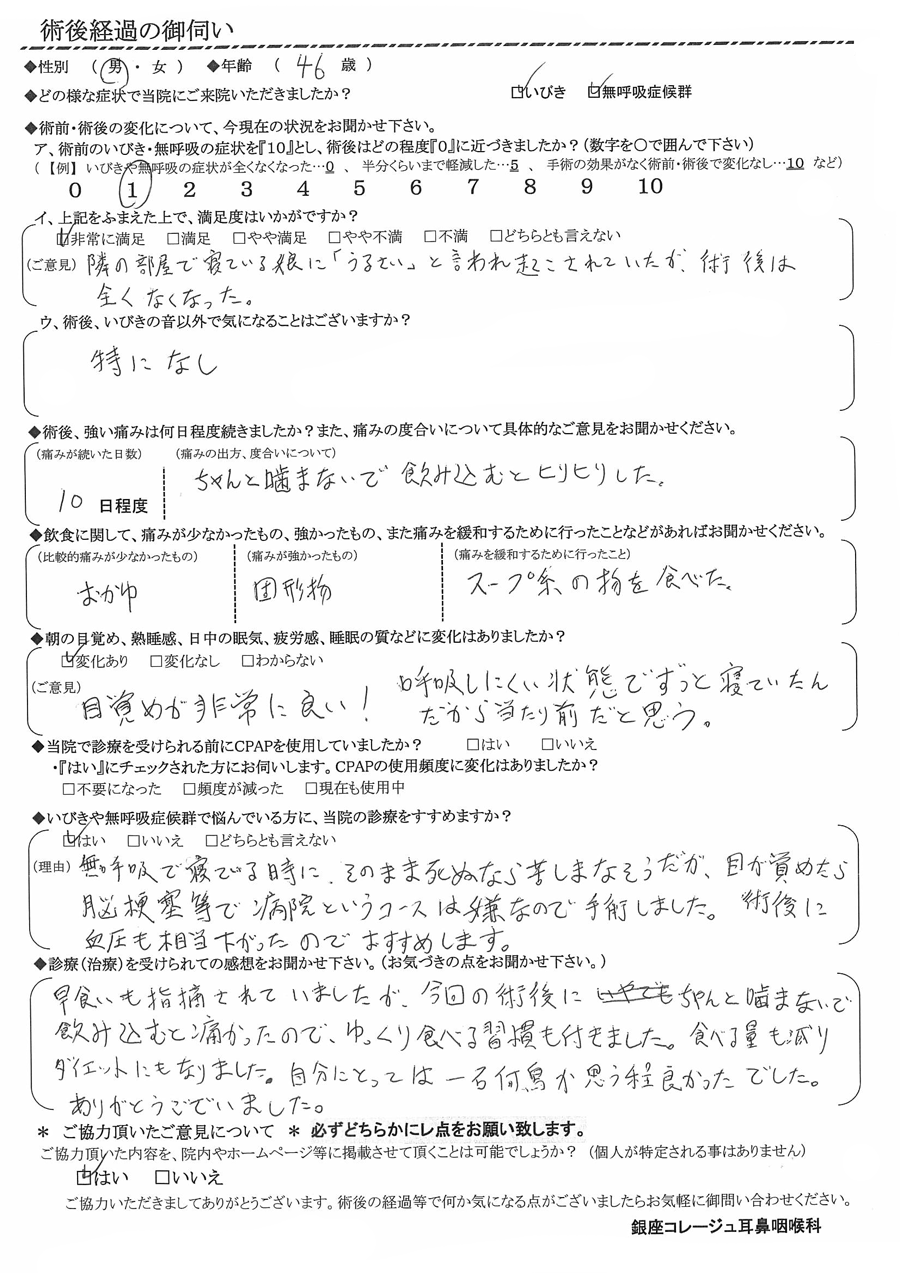 術後経過の御伺い
◆性別 （ 男 ・ 女 ） ◆年齢 （ 46 歳 ）
◆どの様な症状で当院にご来院いただきましたか？ ☑いびき ☑無呼吸症候群
◆術前・術後の変化について、今現在の状況をお聞かせ下さい。
ア、術前のいびき・無呼吸の症状を『10』とし、術後はどの程度『0』に近づきましたか？（数字を〇で囲んで下さい）
（【例】 いびきや無呼吸の症状が全くなくなった…0 、 半分くらいまで軽減した…5 、 手術の効果がなく術前・術後で変化なし…10 など）
0 1 2 3 4 5 6 7 8 9 10
イ、上記をふまえた上で、満足度はいかがですか？
☑非常に満足 □満足 □やや満足 □やや不満 □不満 □どちらとも言えない
（ご意見） 隣の部屋で寝ている娘に「うるせい」と言われ起こされていたが、術後は
全くなくなった。
ウ、術後、いびきの音以外で気になることはございますか？
特になし
◆術後、強い痛みは何日程度続きましたか？また、痛みの度合いについて具体的なご意見をお聞かせください。
（痛みが続いた日数） （痛みの出方、度合いについて）
ちゃんと噛まないで飲み込むとヒリヒリした。
10 日程度
◆飲食に関して、痛みが少なかったもの、強かったもの、また痛みを緩和するために行ったことなどがあればお聞かせください。
（比較的痛みが少なかったもの） （痛みが強かったもの） （痛みを緩和するために行ったこと）
おかゆ 固形物 スープ系の物を食べた。
◆朝の目覚め、熟睡感、日中の眠気、疲労感、睡眠の質などに変化はありましたか？
☑変化あり □変化なし □わからない
（ご意見） 目覚めが非常に良い！ 呼吸しにくい状態でずっと寝ていたん
だから当たり前だと思う。
◆当院で診療を受けられる前にCPAPを使用していましたか？ □はい □いいえ
・『はい』にチェックされた方にお伺いします。CPAPの使用頻度に変化はありましたか？
□不要になった □頻度が減った □現在も使用中
◆いびきや無呼吸症候群で悩んでいる方に、当院の診療をすすめますか？
☑はい □いいえ □どちらとも言えない
（理由） 無呼吸で寝てる時に、そのまま死ぬなら苦しまなそうだが、目が覚めたら
脳梗塞等で病院というコースは嫌なので手術しました。術後に
血圧も相当下がったのでおすすめします。
◆診療（治療）を受けられての感想をお聞かせ下さい。（お気づきの点をお聞かせ下さい。）
早食いも指摘されていましたが、今回の術後にちゃんと噛まないで
飲み込むと痛かったので、ゆっくり食べる習慣も付きました。食べる量も減り
ダイエットにもなりました。自分にとっては一石何鳥か思う程良かったでした。
ありがとうございました。
＊ ご協力頂いたご意見について ＊ 必ずどちらかにレ点をお願い致します。
ご協力頂いた内容を、院内やホームページ等に掲載させて頂くことは可能でしょうか？（個人が特定される事はありません）
☑はい □いいえ
ご協力いただきましてありがとうございます。術後の経過等で何か気になる点がございましたらお気軽に御問い合わせください。
銀座コレージュ耳鼻咽喉科